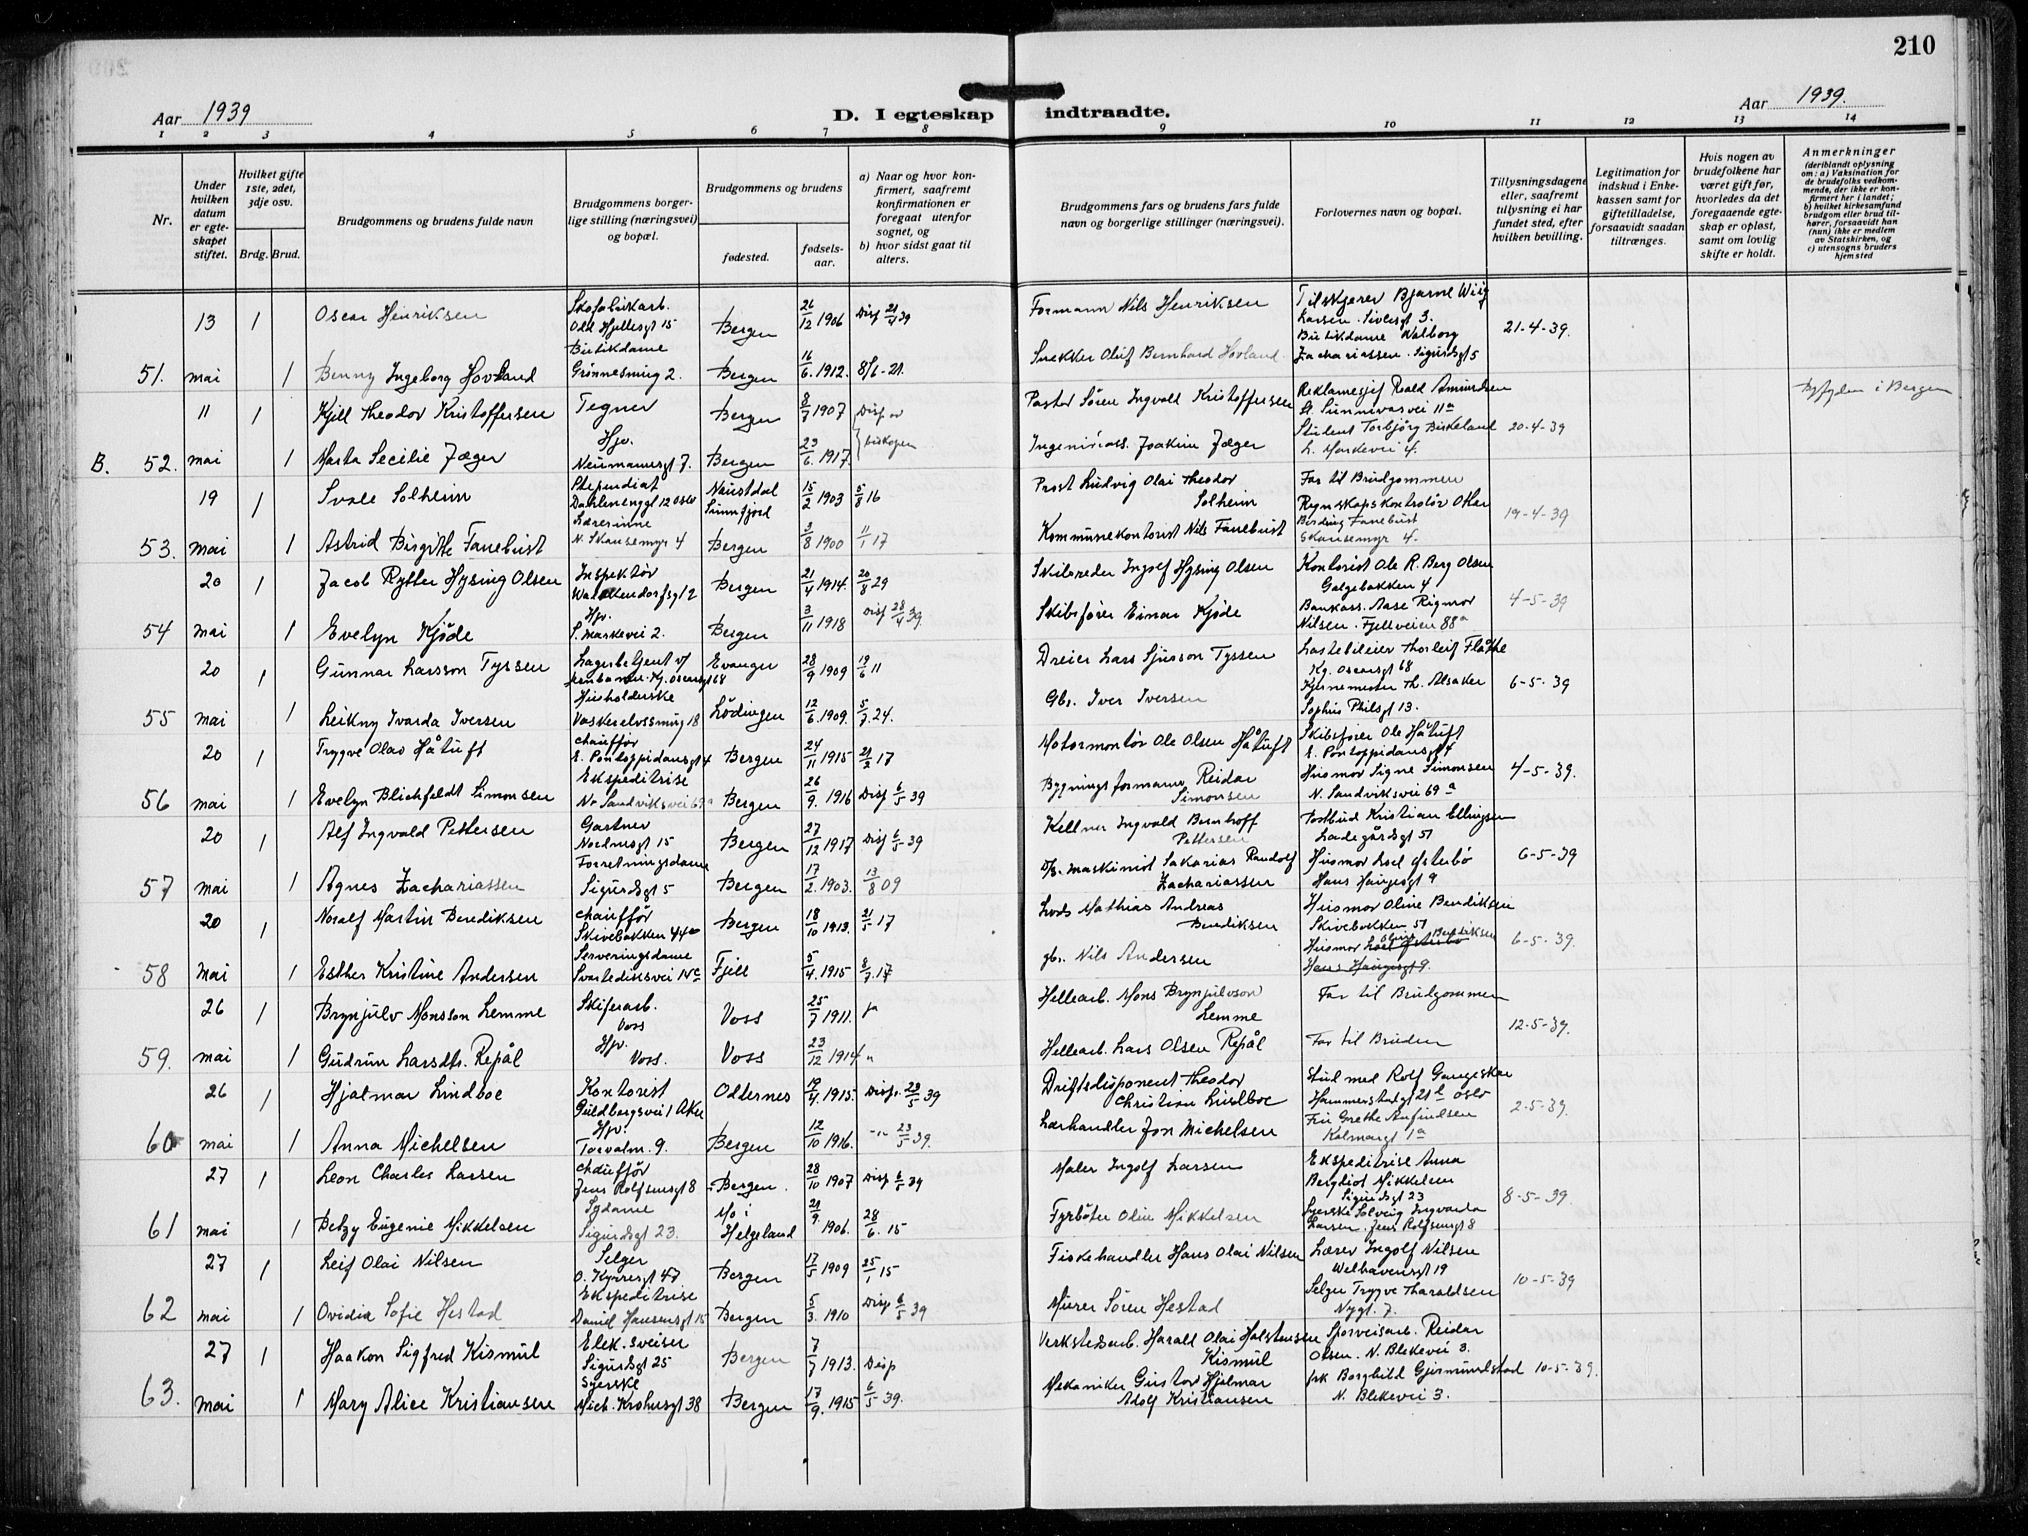 210
Aar 1939
D. I egteskap indtraadte.
Aar 1939.
1 2 3 4 5 6 7 8 9 10 11 12 13 14
Nr.
Under hvilken datum er egteskapet stiftet.
Hvilket gifte 1ste, 2det, 3dje osv.
Brdg. Brud.
Brudgommens og brudens fulde navn
Brudgommens borgerlige stilling (næringsvei) og bopæl.
Brudgommens og brudens
fødested.
fødselsaar.
a) Naar og hvor konfirmert, saafremt konfirmationen er foregaat utenfor sognet, og
b) hvor sidst gaat til alters.
Brudgommens fars og brudens fars fulde navn og borgerlige stillinger (næringsvei).
Forlovernes navn og bopæl.
Tillysningsdagene eller, saafremt tillysning ei har fundet sted, efter hvilken bevilling.
Legitimation for indskud i Enkekassen samt for giftetilladelse, forsaavidt saadan tiltrænges.
Hvis nogen av brudefolkene har været gift før, hvorledes da det foregaaende egteskap er opløst, samt om lovlig skifte er holdt.
Anmerkninger
(deriblandt oplysning om: a) Vaksination for de brudefolks vedkommende, der ikke er konfirmert her i landet; b) hvilket kirkesamfund brudgom eller brud tilhører, forsaavidt han (hun) ikke er medlem av Statskirken, og c) utensogns bruders hjemsted
13 1 Oscar Henriksen Skofabrikarb. Bergen 26/12 1906 Disp 21/4 39 Formann Nils Henriksen Tilskjærer Bjarne Wiig Larsen. Sivlesgt 3. 21-4-39.
51. mai 1 Benny Ingeborg Hovland Butikdame Grønnesmug 2. Bergen 16/6 1912. 8/6-21. Snekker Oluf Bernhard Hovland Butikdame Valborg Zachariassen. Sigurdsgt 5
11 1 Kjell Theodor Kristoffersen Tegner Bergen 8/7 1907 Disp av biskopen Pastor Sören Ingvald Kristoffersen Reklamesjef Roald Amundsen St. Sunnivasvei 11a 20-4-39 Byfjorden i Bergen
B. 52. mai 1 Marta Secilie Jæger Hjv. Neumannsgt 7. Bergen 23/6 1917. Ingeniørass. Joakim Jæger Student Torbjørg Birkeland L. Markevei 4.
19 1 Svale Solheim Stipendiat Dahlenenggt 12 Oslo Naustdal Sunnfjord 15/2 1903 5/8 16 Prost Ludvig Olai Theodor Solheim Far til Brudgommen 19-4-39
53. mai 1 Astrid Birgitte Fanebust Lærerinne N. Skansemyr 4 Bergen 3/8 1900 11/1 17 Kommunekontorist Nils Fanebust Regnskapskontrolør Otter Birding Fanebust Skansemyr 4.
20 1 Jacob Rytter Hysing Olsen Inspektør Walckendorfsgt 2 Bergen 21/4 1914. 20/8 29 Skibsreder Ingolf Hysing Olsen Kontorist Ole R. Berg Olsen Galgebakken 4 4-5-39
54 mai 1 Evelyn Kjøde Hjv. S. Markevei 2. Bergen 3/11 1918 Disp 28/4 39. Skibsfører Einar Kjøde Bankass. Aase Rigmor Nilsen. Fjellveien 88a
20 1 Gunnar Larsson Tyssen Lagerbetjent v/ Jernbanen. Kg. Oscarsgt 68 Evanger 28/9 1909 19/6 11 Dreier Lars Sjursson Tyssen Lastebileier Thorleif Flåthe Kg. Oscarsgt 68 6-5-39
55 mai 1 Leikny Ivarda Iversen Husholderske Vaskerelvssmug 18 Lödingen 12/6 1909. 5/7.24. Gbr. Iver Iversen Kjernemester Th. Alsaker Sophus Philsgt 13.
20 1 Trygve Olao Håtuft chauffør E. Pontoppidansgt 4 Bergen 24/11 1915 21/2 17 Motormontør Ole Olsen Håtuft Skibsfører Ole Håtuft E. Pontoppidansgt 4 4-5-39.
56 mai 1 Evelyn Blichfeldt Simonsen Ekspeditrise N. Sandviksvei 69a Bergen 26/9. 1916 Disp 6/5 39 Bygningsformann Reidar Simonsen Husmor Signe Simonsen N. Sandviksvei 69a
20 1 Alf Ingvald Pettersen Gartner Nordnesgt 15 Bergen 27/12 1917 Disp 6/5-39 Kellner Ingvald Bernhoff Pettersen Postbud Kristian Ellingsen Ladegårdsgt 51 6-5-39
57 mai 1 Agnes Zachariassen Forretningsdame Sigurdsgt 5 Bergen 17/2. 1903. 13/8 09 D/s. maskinist Sakarias Randolf Zachariassen Husmor Loel Østerbø Hans Haugesgt 9
20 1 Noralf Martin Bendiksen chauffør Skivebakken 44a Bergen 18/10 1913. 21/5 17 Lods Mathias Andreas Bendiksen Husmor Oline Bendiksen Skivebakken 51 6-5-39.
58 Mai 1 Esther Kristine Andersen Serveringsdame Svartediksvei 14c Fjell 5/4. 1915 8/7.17 gbr. Nils Andersen Husmor Oline Bendiksen
26 1 Brynjulv Monsson Lemme Skiferarb. Voss Voss 25/7 1911. ja Hellearb. Mons Brynjulvson Lemme Far til Brudgommen 12-5-39.
59. mai 1 Gudrun Larsdtr. Repål Hjv. Voss. Voss 23/12 1914 " Hellearb. Lars Olsen Repål Far til Bruden
26 1 Hjalmar Lindboe Kontorist Guldbergsvei 1 Aker Odternes 19/4. 1915. Disp. 23/5 39 Driftsdisponent Theodor Christian Lindboe Stud med Rolf Gangeskar Hammerstadgt 21 b Oslo 2-5-39.
60 mai 1 Anna Michelsen Hjv. Torvalm. 9. Bergen 12/10 1916. -"- 23/5 39. Lærhandler Jon Michelsen Fru Grethe Anfindsen Kalmargt 1a
27 1 Leon Charles Larsen chauffør Jens Rolfsensgt 8 Bergen. 28/10 1907 Disp 6/5 39 Maler Ingolf Larsen Ekspeditrise Anna Bergliot Mikkelsen Sigurdsgt 23 8-5-39.
61 mai 1 Betzy Eugenie Mikkelsen Sydame Sigurdsgt 23. Mo i Helgeland 21/9 1906. 28/6. 15 Fyrbøter Olin Mikkelsen Syerske Solveig Ingvarda Larsen. Jens Rolfsensgt 8
27 1 Leif Olai Nilsen Selger O. Kyrresgt 47 Bergen 17/5 1909 25/1 15 Fiskehandler Hans Olai Nilsen Lærer Ingolf Nilsen Welhavensgt 19 10-5-39
62 mai 1 Ovidia Sofie Hestad Ekspeditrise Daniel Hansensgt 15 Bergen 5/3. 1910 Disp 6/5 39 Murer Sören Hestad Selger Trygve Tharaldsen Nygt. 7.
27 1 Haakon Sigfred Kismul Elek. sveiser Sigurdsgt 25 Bergen 7/7 1913. Disp Verkstedsarb. Harald Olai Halstensen Kismul Sporveisarb. Reidar Olsen. N. Blekevei 3. 10-5-39.
63. mai 1 Mary Alice Kristiansen Syerske Mich. Krohnsgt 38 Bergen 17/9. 1915 6/5 39. Mekaniker Gustav Hjelmar Adolf Kristiansen frk Borghild Gjermundstad N. Blekevei 3.